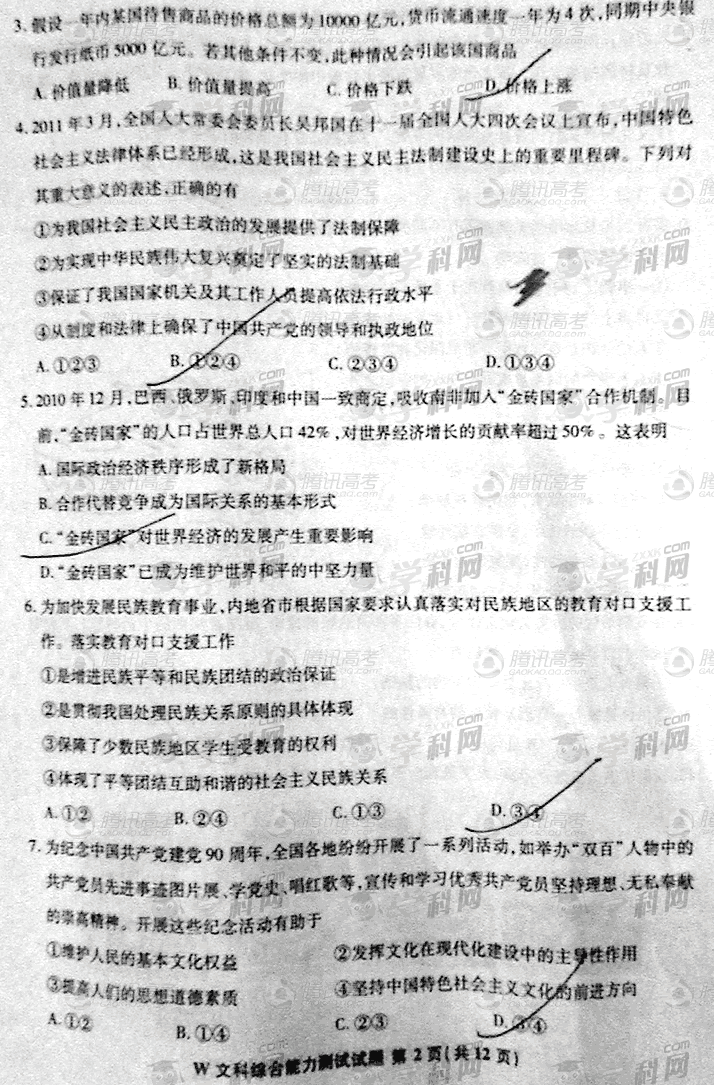 3. 假设一年内某国待售商品的价格总额为10000亿元,货币流通速度一年为4次,同期中央银
行发行纸币5000亿元。若其他条件不变,此种情况会引起该国商品
A. 价值量降低 B. 价值量提高 C. 价格下跌 D. 价格上涨
4. 2011年3月,全国人大常委会委员长吴邦国在十一届全国人大四次会议上宣布,中国特色
社会主义法律体系已经形成,这是我国社会主义民主法制建设史上的重要里程碑。下列对
其重大意义的表述,正确的有
①为我国社会主义民主政治的发展提供了法制保障
②为实现中华民族伟大复兴奠定了坚实的法制基础
③保证了我国国家机关及其工作人员提高依法行政水平
④从制度和法律上确保了中国共产党的领导和执政地位
A.①②③ B.①②④ C.②③④ D.①③④
5. 2010年12月,巴西、俄罗斯、印度和中国一致商定,吸收南非加入“金砖国家”合作机制。目
前,“金砖国家”的人口占世界总人口42%,对世界经济增长的贡献率超过50%。这表明
A. 国际政治经济秩序形成了新格局
B. 合作代替竞争成为国际关系的基本形式
C. “金砖国家”对世界经济的发展产生重要影响
D. “金砖国家”已成为维护世界和平的中坚力量
6. 为加快发展民族教育事业,内地省市根据国家要求认真落实对民族地区的教育对口支援工
作。落实教育对口支援工作
①是增进民族平等和民族团结的政治保证
②是贯彻我国处理民族关系原则的具体体现
③保障了少数民族地区学生受教育的权利
④体现了平等团结互助和谐的社会主义民族关系
A.①② B.②④ C.①③ D.③④
7. 为纪念中国共产党建党90周年,全国各地纷纷开展了一系列活动,如举办“双百”人物中的
共产党员先进事迹图片展、学党史、唱红歌等,宣传和学习优秀共产党员坚持理想、无私奉献
的崇高精神。开展这些纪念活动有助于
①维护人民的基本文化权益 ②发挥文化在现代化建设中的主导性作用
③提高人们的思想道德素质 ④坚持中国特色社会主义文化的前进方向
A.①② B.①④ C.②③ D.③④
W 文科综合能力测试试题 第2页(共12页)